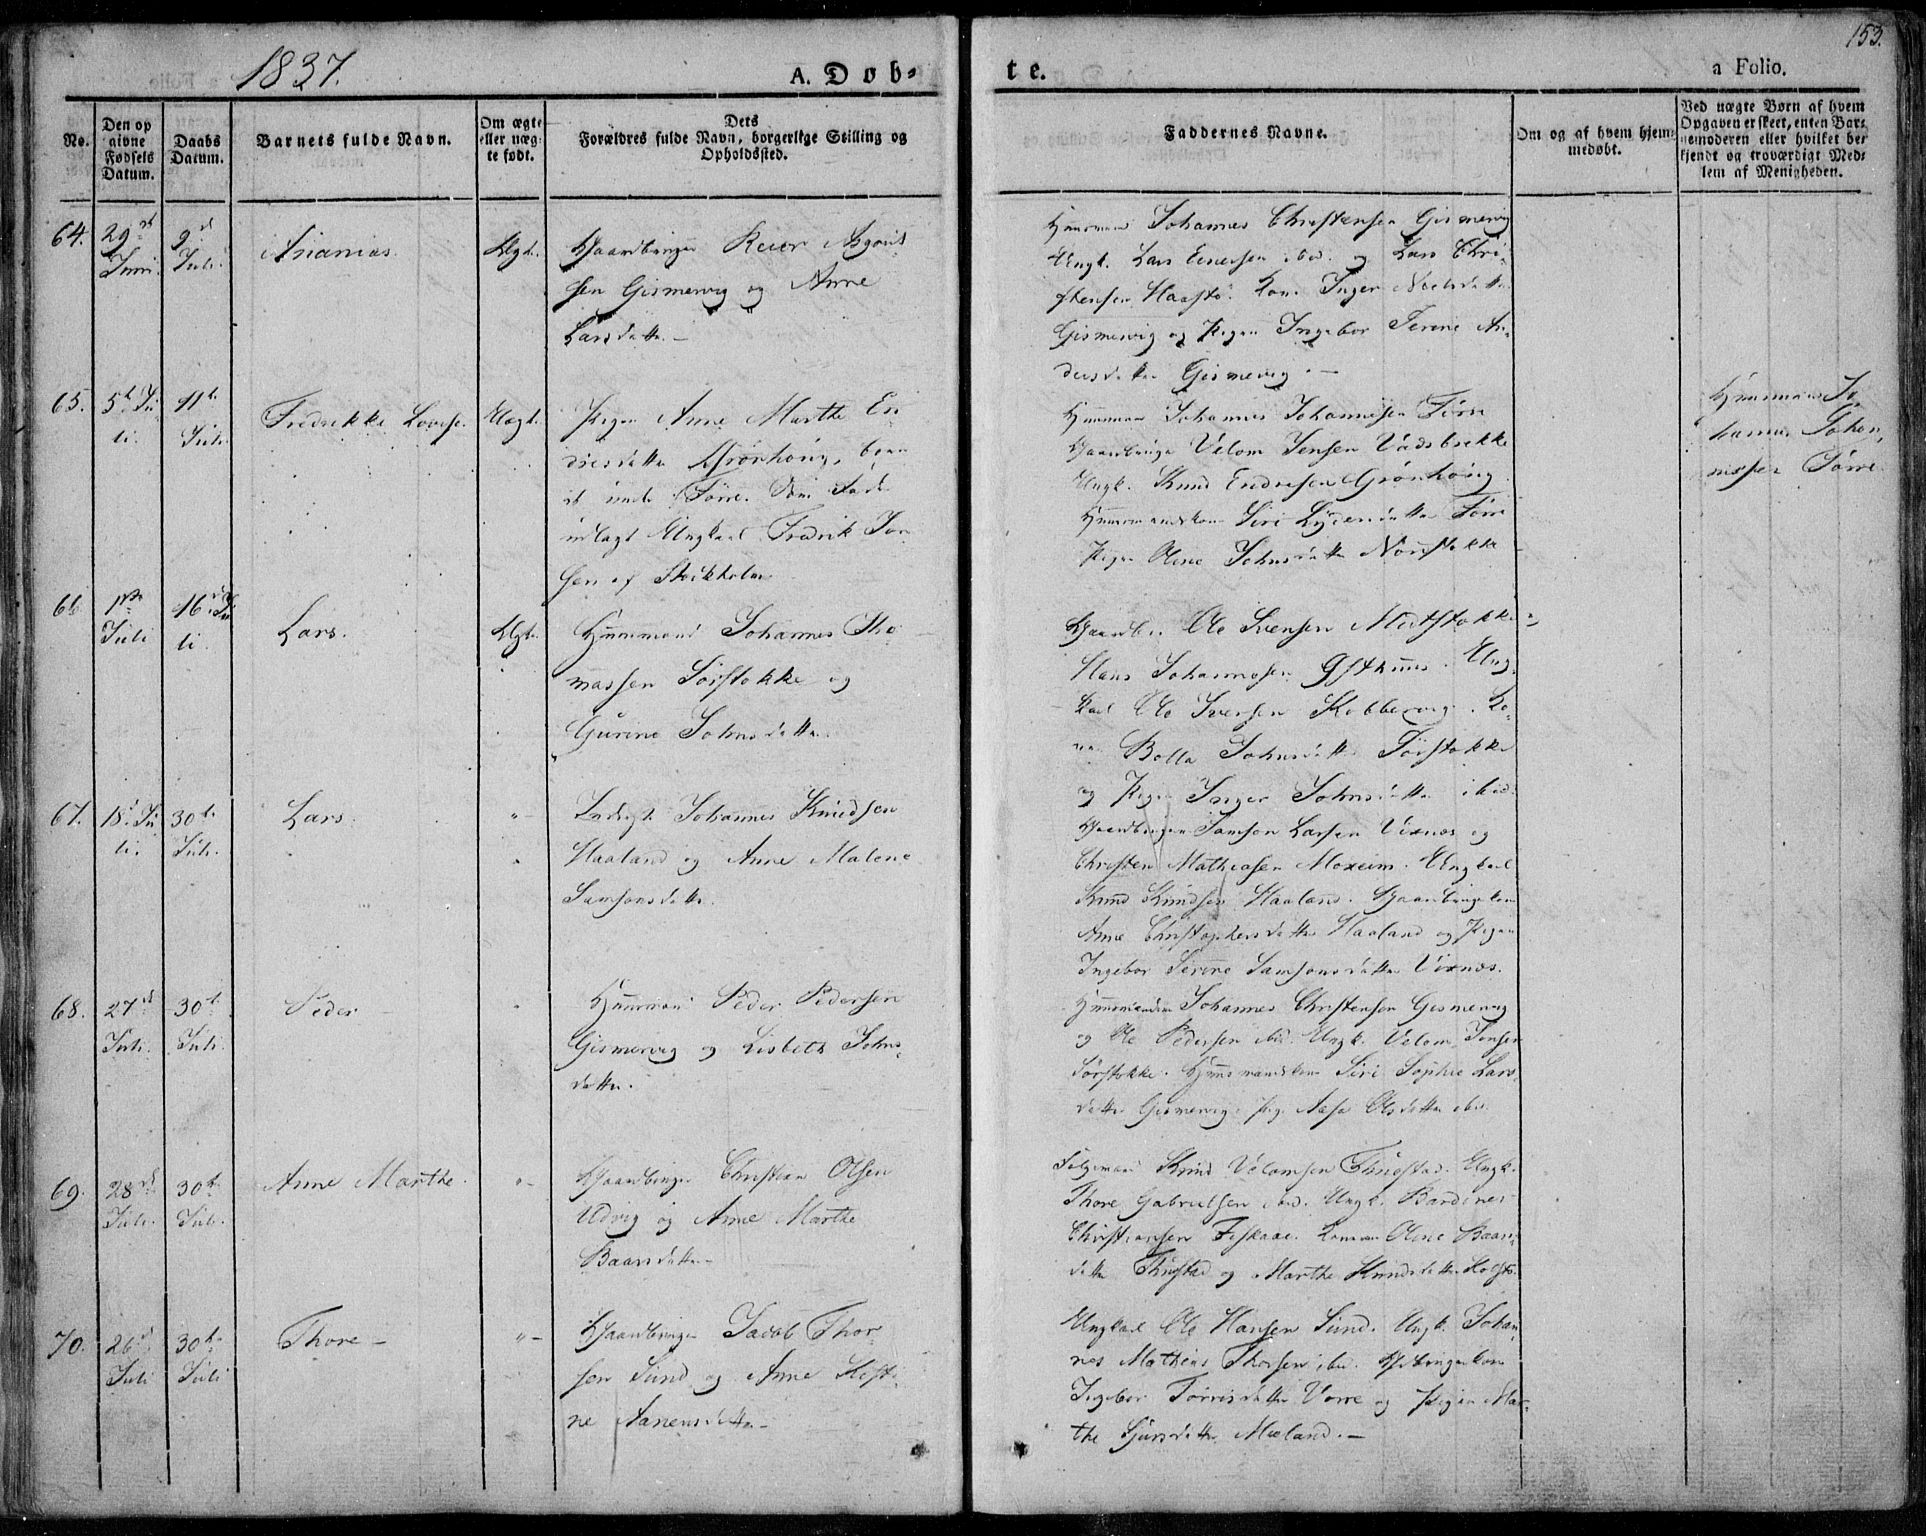 153.
1837.
A. Døb-
te.
a Folio.
No.
Den op
givne
Fødsels
Datum.
Daabs
Datum.
Barnets fulde Navn.
Om ægte
eller næg-
te født.
Dets
Forældres fulde Navn, borgerlige Stilling og
Opholdssted.
Faddernes Navne.
Om og af hvem hjem-
medøbt.
Ved uægte Børn af hvem
Opgaven er skeet, enten Bar-
nemoderen eller hvilket be-
kjendt og troværdigt Med-
lem af Menigheden.
64.
29
Juni.
9d
Juli.
Ananias.
Ægt.
Gaardbruger Reier Asgout
sen Gismervig og Anne
Larsdatter.
Huusmand Johannes Christensen Gismervig
Ungk. Lars Einersen ibid. og Lars Chri-
stensen Haastø. Kone Inger Noelsdatter
Gismervig og Pigen Ingebor Serine An-
dersdatter Gismervig.
65.
5t Ju
li.
11t
Juli.
Fredrikke Lovise.
Uægt.
Pigen Anne Marthe En
dresdatter Grønhoug,
Førre. Som Fader
udlagt Ungkarl Fredrik Jon
sen af Stokholm
Huusmand Johannes Johannesen Førre
Gaardbruger Velom Jensen Vadsbrekke
Ungk. Knud Endresen Grønhoug.
Huusmandskone Siri Lydersdatter Førre
Pigen Olene Johnsdatter Norstokke
Huusmand Jo
hannes Johan,
nessen Førre.
66
1ste
Juli
16d Ju
li.
Lars.
Ægt.
Huusmand Johannes Tho
massen Sørstokke og
Gurine Johnsdatter
Gaardbr. Ole Svensen Midtstokke
Hans Johannesen Østhuus. Ung-
karl Ole Iversen Kobbervig. Ko-
ne Bolla Johnsdatter Sørstokke
og Pigen Inger Johnsdatter ibid.
67.
18d Ju
li.
30t
Juli.
Lars.
"-
Johannes Knudsen
Haaland og Anne Malene
Samsonsdatter.
Gaardbrugerne Samson Larsen Vixnæs og
Christen Mathiasen Moxeim. Ungkarl
Knud Knudsen Haaland. Gaardbrugerkone
Anne Christophersdatter Haaland og Pigen
Ingebor Serine Samsonsdatter Vixnæs.
68.
27d
Juli.
30t
Juli.
Peder
"
Huusmand Peder Pedersen
Gismervig og Lisbeth Johns-
datter.
Huusmændene Johannes Christensen Gismervig
og Ole Pedersen ibid. Ungk. Velom Jensen
Sørstokke. Huusmandskone Siri Sophie Lars-
datter Gismervig. Pig. Aasa Olsdatter ibid.
69.
28d
Juli.
30t
Juli.
Anne Marthe.
"-
Gaardbruger Christian Olsen
Udvig og Anne Marthe
Baarsdatter
Knud Velomsen Thuestad. Ungk.
Thore Gabrielsen ibid. Ungk. Bardines
Christiansen Feskaae. Konerne Olene Baars
datter Thuestad og Marthe Knudsdatter Holstø.
70.
26d
Juli
30t
Juli
Thore -
"-
Gaardbruger Jacob Thor
sen Sund og Anne Kisti-
ne Aanensdatter
Ungkarl Ole Hansen Sund. Ungk. Johan-
nes Mathias Thorsen ibid. Gbrugerkone
Ingebor Torrisdatter Vorre og Pigen Mar-
the Sjursdatter Mæland. -